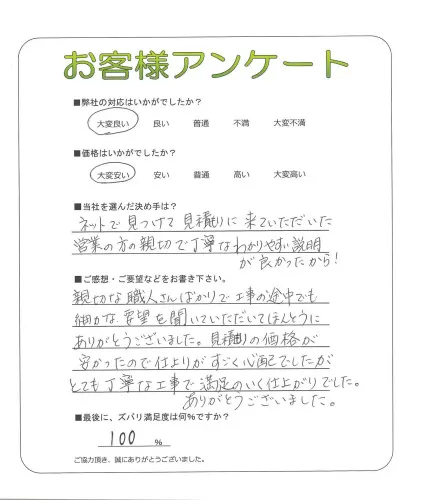 お客様アンケート
■弊社の対応はいかがでしたか？
大変良い 良い 普通 不満 大変不満
■価格はいかがでしたか？
大変安い 安い 普通 高い 大変高い
■当社を選んだ決め手は？
ネットで見つけて見積りに来ていただいた
営業の方の親切で丁寧なわかりやすい説明
が良かったから！
■ご感想・ご要望などをお書き下さい。
親切な職人さんばかりで工事の途中でも
細かな要望を聞いていただいてほんとうに
ありがとうございました。見積りの価格が
安かったので仕上りがすごく心配でしたが
とても丁寧な工事で満足のいく仕上がりでした。
ありがとうございました。
■最後に、ズバリ満足度は何%ですか？
100 %
ご協力頂き、誠にありがとうございました。